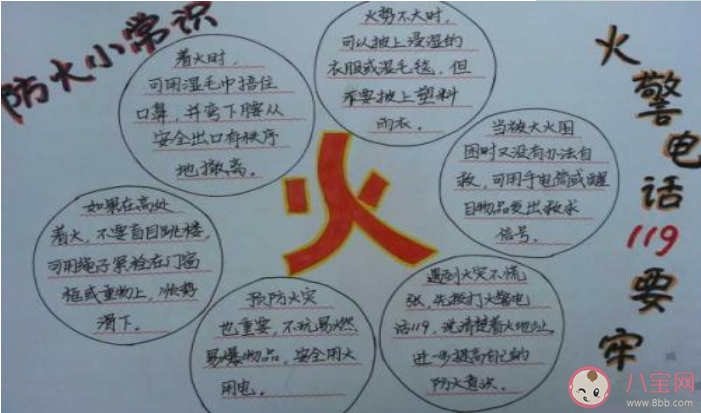 防火小常识
着火时，
可用湿毛巾捂住
口鼻，并弯下腰从
安全出口有秩序
地撤离。
火势不大时，
可以披上浸湿的
衣服或湿毛毯，但
不要披上塑料
雨衣。
当被大火围
困时又没有办法自
救，可用手电筒或醒
目物品发出救求
信号。
如果在高处
着火，不要盲目跳楼，
可用绳子紧栓在门窗
框或重物上，顺势
滑下。
火
预防火灾
也重要，不玩易燃
易爆物品，安全用火
用电。
遇到火灾不慌
张，先拨打火警电
话119，说清楚着火地址，
进一步提高自己的
防火意识。
火警电话119要牢
八宝网
www.8bb.com